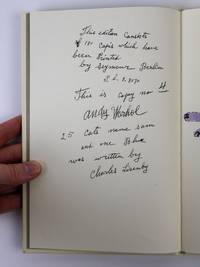 This edition consists
of 190 copies which have
been Printed
by Seymour Berlin
This is copy no 4
andy Warhol
25 Cats name sam
and one Blue
was written by
Charles Lisanby